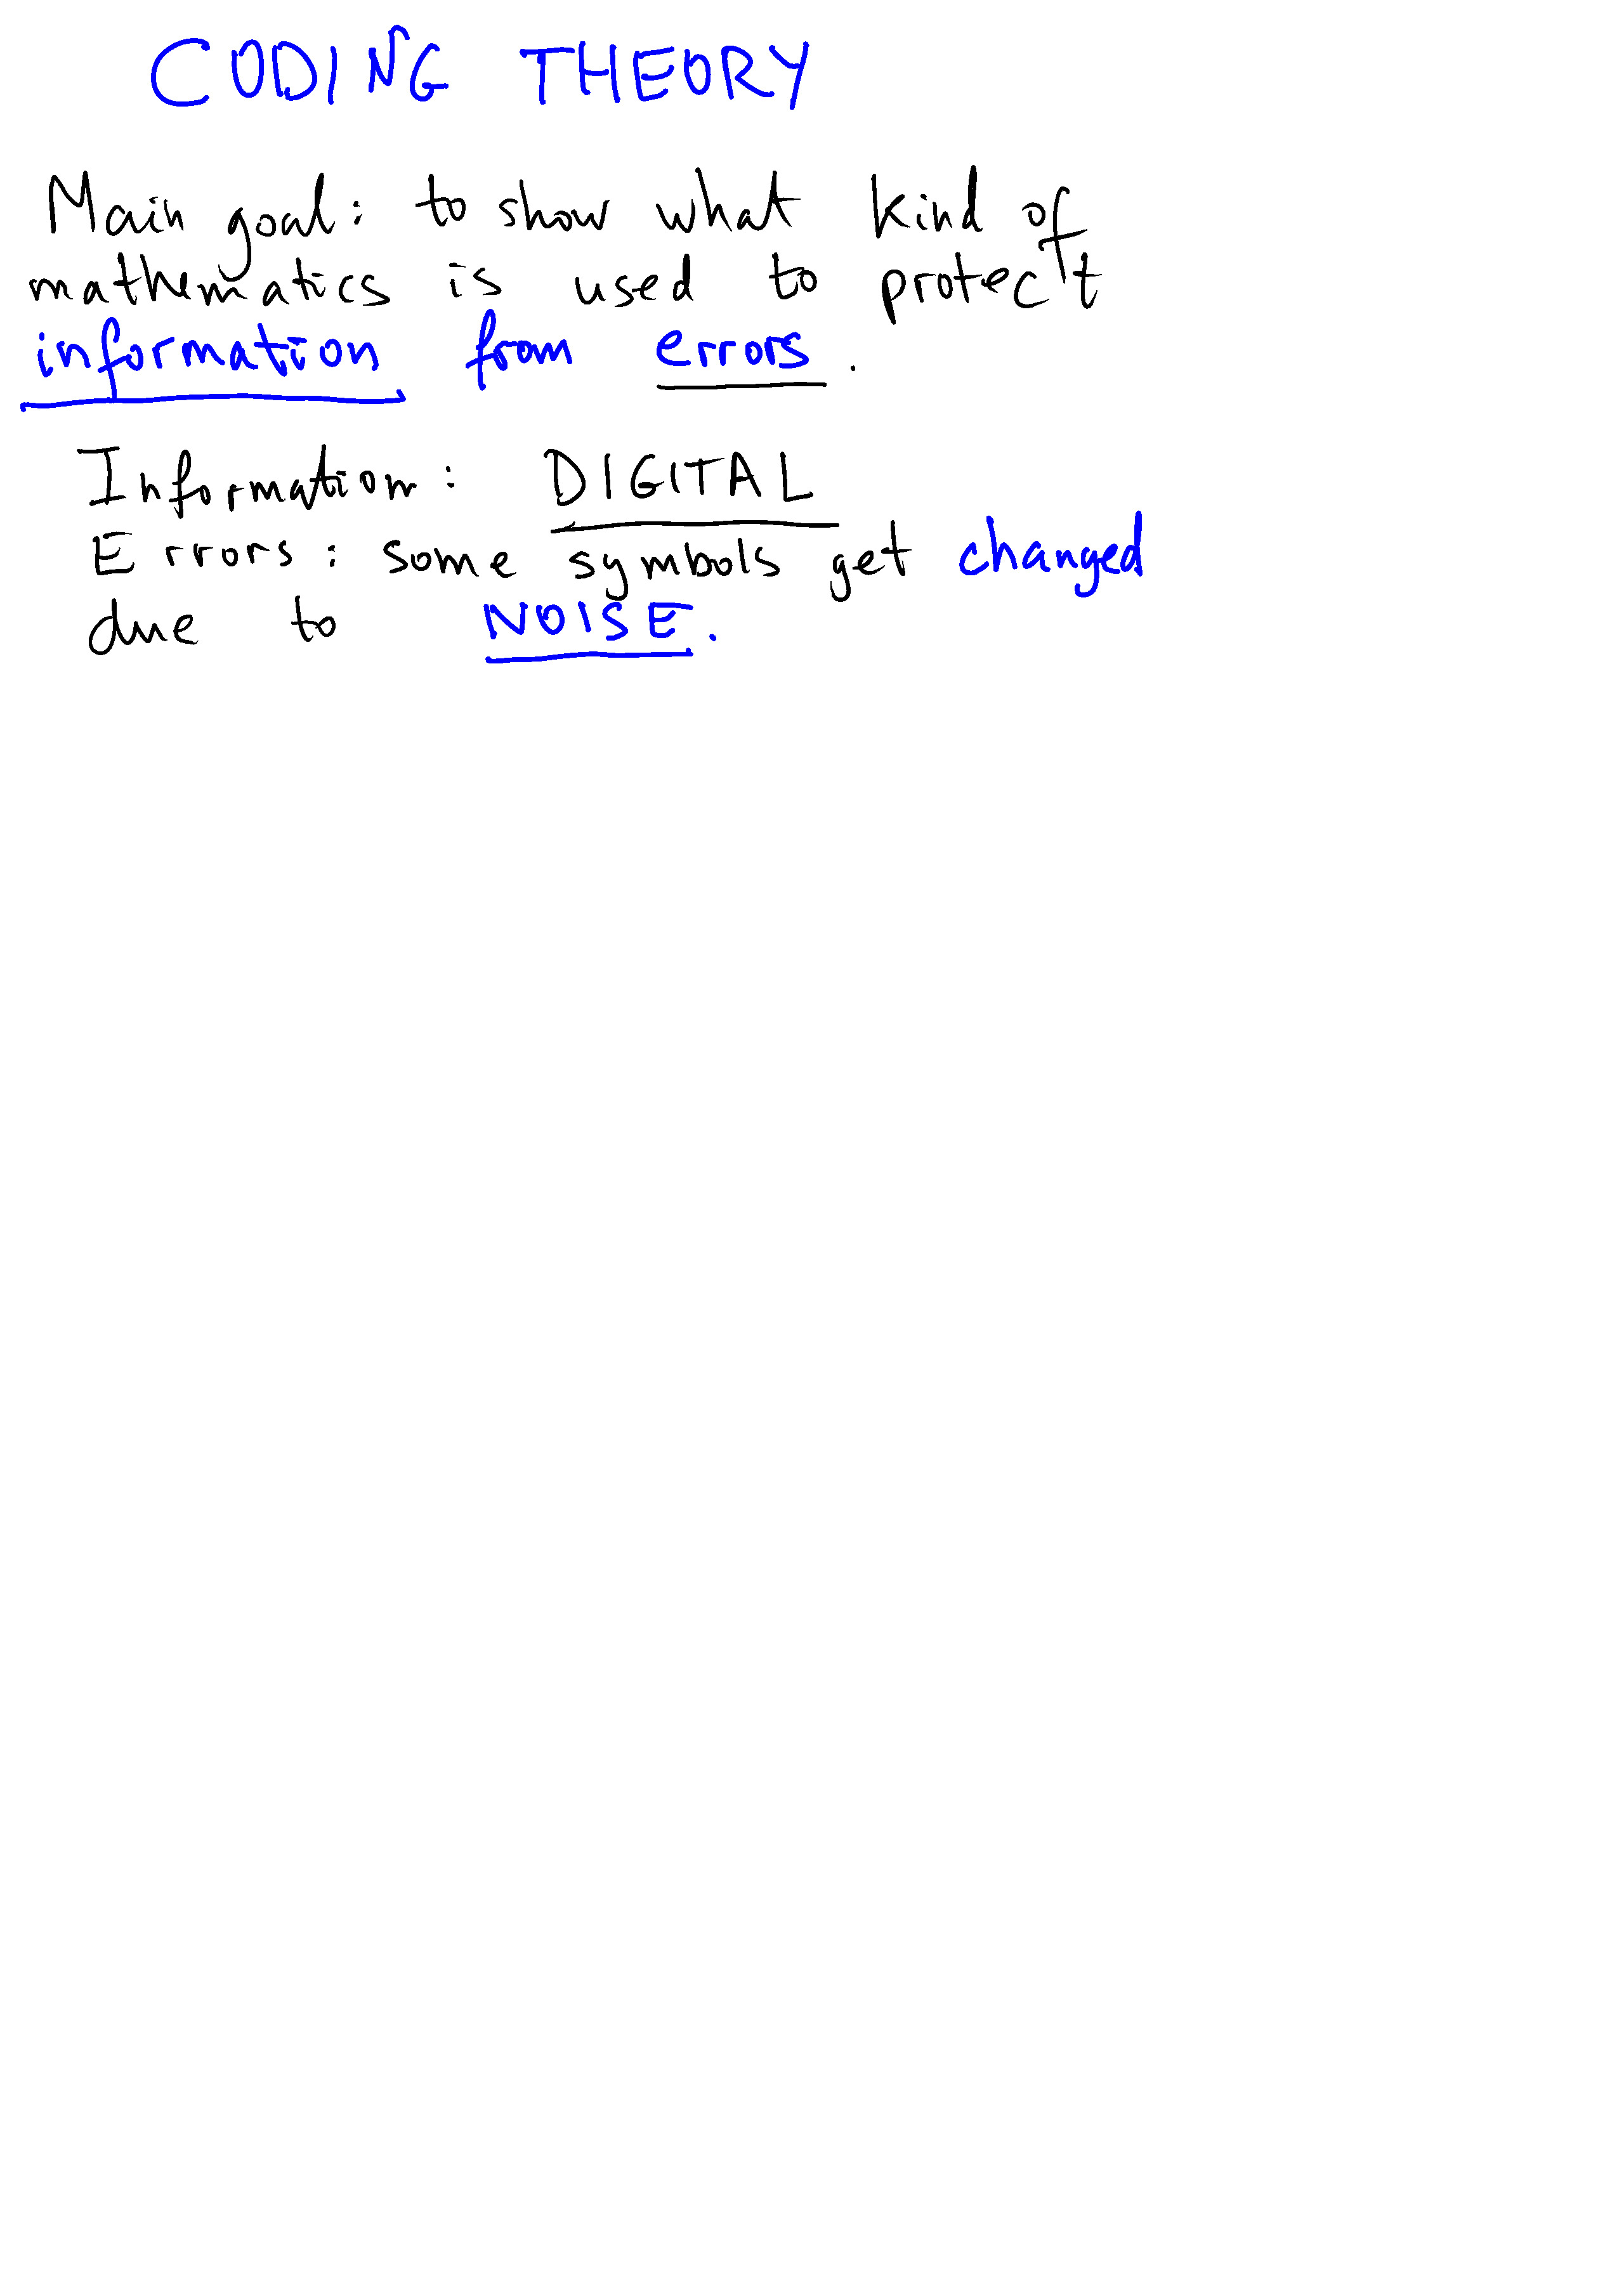 CODING THEORY
Main goal: to show what kind of
mathematics is used to protect
information from errors.
Information: DIGITAL
Errors: some symbols get changed
due to NOISE.